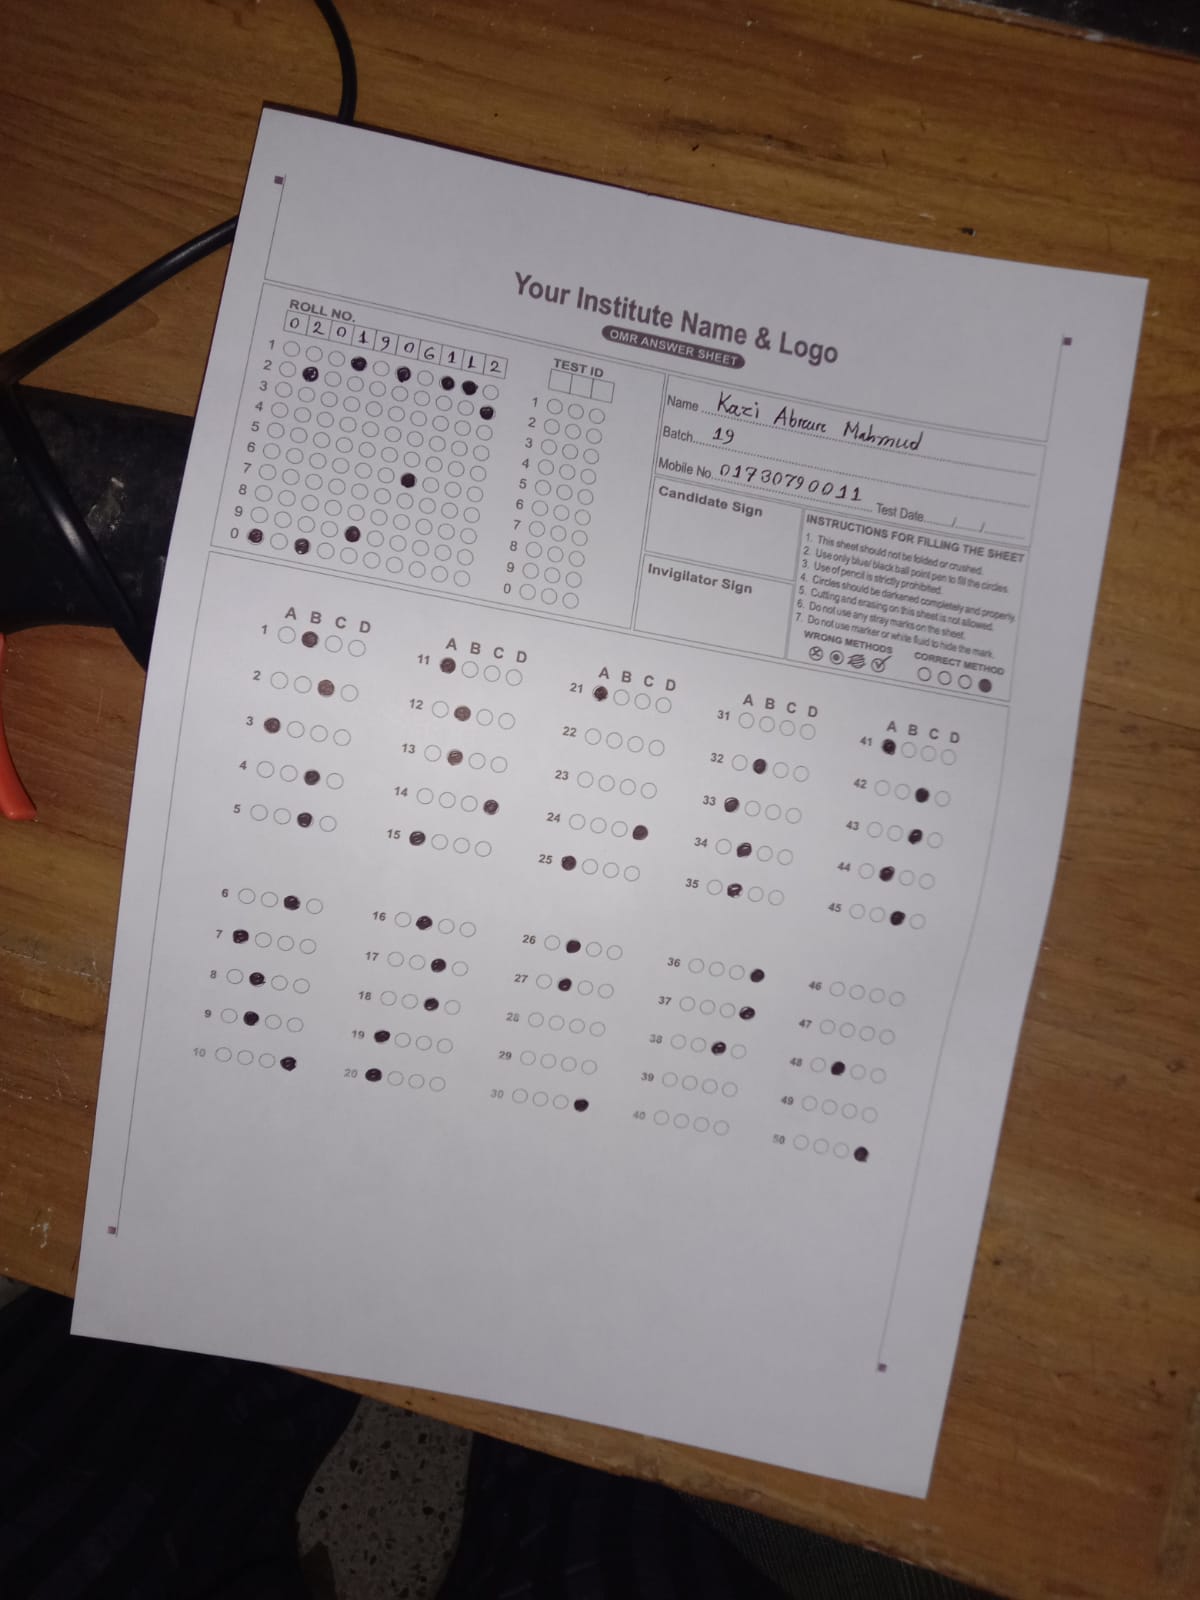 Your Institute Name & Logo
OMR ANSWER SHEET
ROLL NO.
0 2 0 1 9 0 6 1 1 2
1
2
3
4
5
6
7
8
9
0
TEST ID
1
2
3
4
5
6
7
8
9
0
Name Kazi Abrar Mahmud
Batch 19
Mobile No. 01730790011 Test Date / /
Candidate Sign
Invigilator Sign
INSTRUCTIONS FOR FILLING THE SHEET
1. This sheet should not be folded or crushed.
2. Use only blue/ black ball point pen to fill the circles.
3. Use of pencil is strictly prohibited.
4. Circles should be darkened completely and properly.
5. Cutting and erasing on this sheet is not allowed.
6. Do not use any stray marks on the sheet.
7. Do not use marker or white fluid to hide the mark.
WRONG METHODS CORRECT METHOD
A B C D
1
2
3
4
5
6
7
8
9
10
A B C D
11
12
13
14
15
16
17
18
19
20
A B C D
21
22
23
24
25
26
27
28
29
30
A B C D
31
32
33
34
35
36
37
38
39
40
A B C D
41
42
43
44
45
46
47
48
49
50